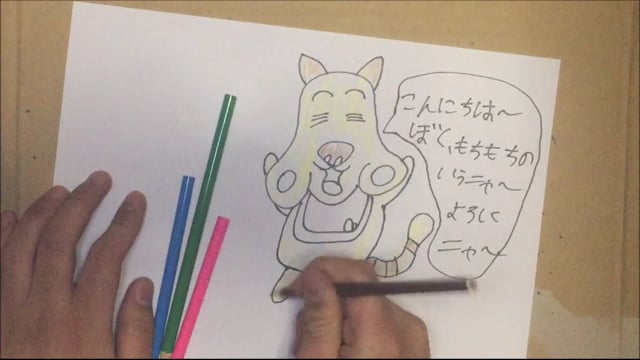 こんにちは〜
ぼく、もちもちの
いうニャ〜
よろしく
ニャ〜